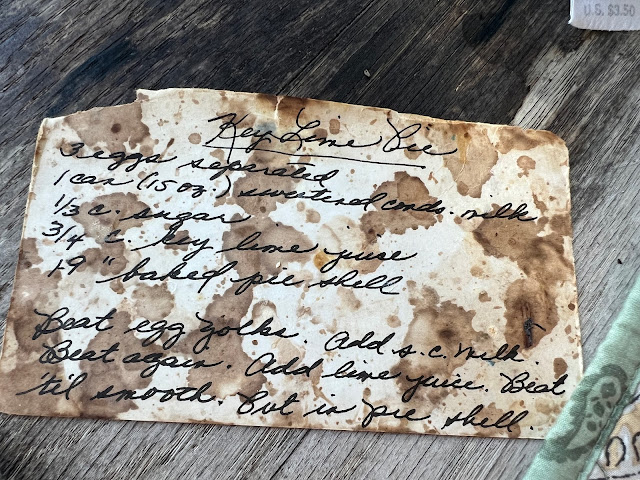 U.S. $3.50
Key Lime Pie
3 eggs separated
1 can (15 oz.) sweetened conds. milk
1/3 c. sugar
3/4 c. key lime juice
1-9" baked pie shell
Beat egg yolks. Add s.c. milk.
Beat again. Add lime juice. Beat
'til smooth. Put in pie shell.